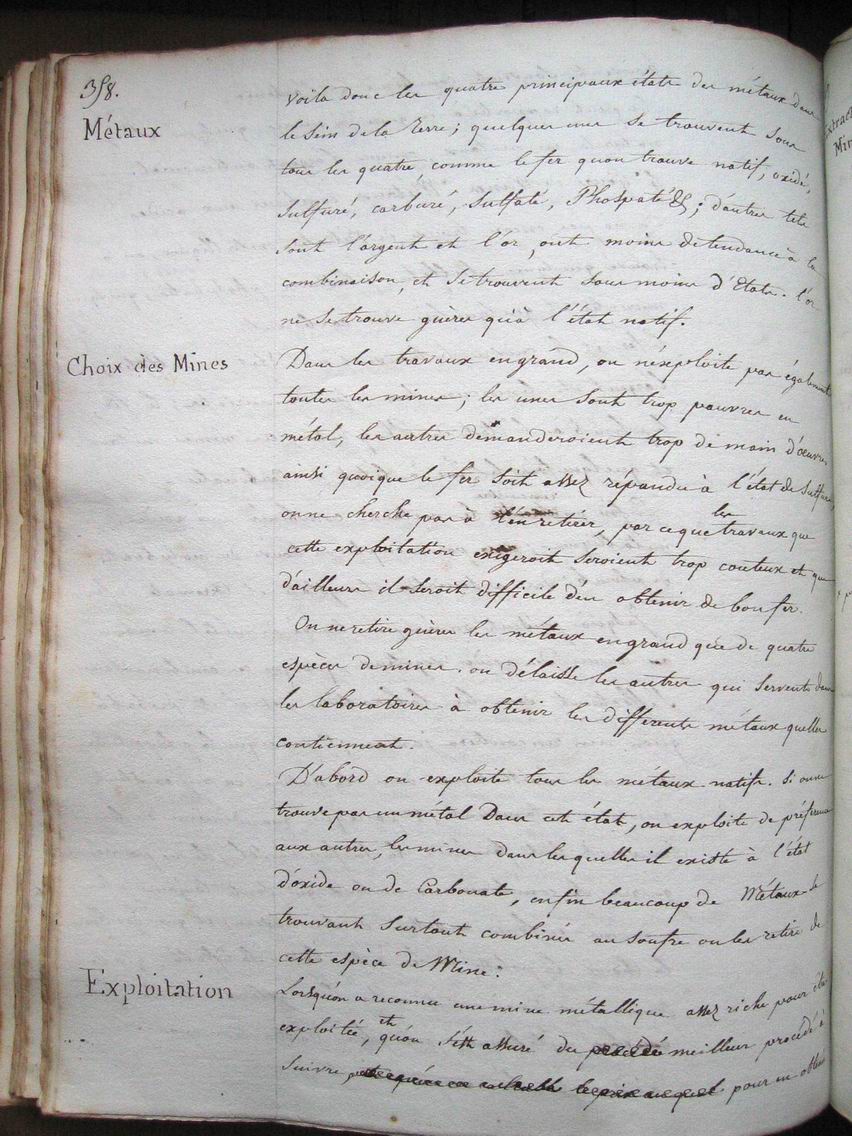 358.
Métaux
Voila donc les quatre principaux états des métaux dans
le sein de la Terre; quelques uns se trouvent sous
tous les quatre, comme le fer quon trouve natif, oxidé,
sulfuré, carburé, sulfaté, Phospaté &; d'autres tels
sont l'argent et l'or, ont moins detendance à la
combinaison, et se trouvent sous moins d'Etats. l'or
ne se trouve guères qu'à l'état natif.
Choix des Mines
Dans les travaux engrand, on n'exploite pas également
toutes les mines; les unes sont trop pauvres en
métal, les autres demanderoient trop de main d'oeuvres
ainsi quoique le fer soit assez répandu à l'état de sulfure,
on ne cherche pas à l'en retirer, par ceque les travaux que
cette exploitation exigeroit seroient trop couteux et que
d'ailleurs il seroit difficile d'en obtenir de bon fer.
On ne retire guères les métaux en grand que de quatre
espèces de mines. on délaisse les autres qui servent dans
les laboratoires à obtenir les différents métaux quelles
contiennent.
D'abord on exploite tous les métaux natifs. Si on ne
trouve pas un métal Dans cet état, on exploite de préférence
aux autres, les mines dans les quelles il existe à l'état
d'oxide ou de Carbonate, enfin beaucoup de Métaux se
trouvant surtout combinés au soufre on les retire de
cette espèce de Mine.
Exploitation
Lorsqu'on a reconnu une mine métallique assez riche pour être
exploitée, et qu'on s'est assuré du meilleur procédé à
suivre pour en obtenir